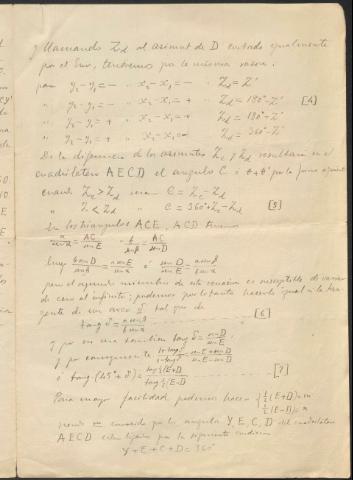 y llamando Zd al azimut de D contado igualmente
por el Sur, tendremos por la misma razon.
para y2-y1 = - " x2-x1 = - " Zd = Z'
" y2-y1 = - " x2-x1 = + " Zd = 180°-Z' [4]
" y2-y1 = + " x2-x1 = + " Zd = 180°+Z'
" y2-y1 = + " x2-x1 = - " Zd = 360°-Z'
De la diferencia de los azimutes Zc y Zd resultará en el
cuadrilatero AECD el angulo C ó por la forma siguiente
cuando Zc > Zd sera C = Zc-Zd
" Zc < Zd " C = 360°+Zc-Zd [5]
En los triangulos ACE, ACD tenemos
= AC/sen E = AC/sen D
luego ó
pero el segundo miembro de esta ecuacion es susceptible de variar
de cero al infinito; podemos por lo tanto hacerlo igual a la tan-
gente de un arco δ tal que de
tang δ = [6]
y por eso sera tambien tang δ = sen D/sen E
y por consiguiente 1+tang δ/1-tang δ = sen E+sen D/sen E-sen D
ó tang(45°+δ) = tang ½(E+D)/tang ½(E-D) [7]
Para mayor facilidad podemos hacer ½(E+D) = m
½(E-D) = n
siendo m conocido por los angulos Y, E, C, D del cuadrilatero
AECD estan ligados por la siguiente condicion
Y+E+C+D = 360°